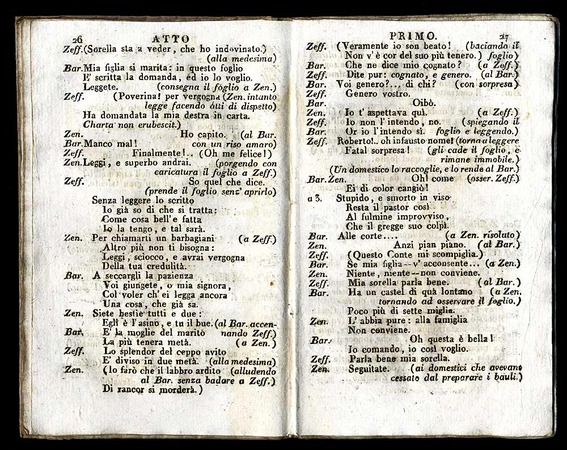 26 ATTO
Zeff. (Sorella sta a veder, che ho indovinato.)
(alla medesima)
Bar. Mia figlia si marita: in questo foglio
E' scritta la domanda, ed io lo voglio.
Leggete. (consegna il foglio a Zen.)
Zeff. (Poverina! per vergogna (Zen. intanto
legge facendo atti di dispetto)
Ha domandata la mia destra in carta.
Charta non erubescit.)
Zen. Ho capito. (al Bar.
Bar. Manco mal! con un riso amaro)
Zeff. Finalmente!.. (Oh me felice!)
Zen. Leggi, e superbo andrai. (porgendo con
caricatura il foglio a Zeff.)
Zeff. So quel che dice.
(prende il foglio senz' aprirlo)
Senza leggere lo scritto
Io già so di che si tratta:
Come cosa bell' e fatta
Io la tengo, e tal sarà.
Zen. Per chiamarti un barbagiani (a Zeff.)
Altro più non ti bisogna:
Leggi, sciocco, e avrai vergogna
Della tua credulità.
Bar. A seccargli la pazienza
Voi giungete, o mia signora,
Col voler ch' ei legga ancora
Una cosa, che già sa.
Zen. Siete bestie tutti e due:
Egli è l'asino, e tu il bue. (al Bar. accen-
Bar. E' la moglie del marito nando Zeff.)
La più tenera metà. (a Zen.)
Zeff. Lo splendor del ceppo avito
E' diviso in due metà. (alla medesima)
Zen. (Io farò che il labbro ardito (alludendo
al Bar. senza badare a Zeff.)
Di rancor si morderà.)
PRIMO. 27
Zeff. (Veramente io son beato! (baciando il
Non v'è cor del suo più tenero.) foglio)
Bar. Che ne dice mio cognato? (a Zeff.)
Zeff. Dite pur: cognato, e genero. (al Bar.)
Bar. Voi genero?... di chi? (con sorpresa)
Zeff. Genero vostro.
Bar. Oibò.
Zen. Io t' aspettava quì. (a Zeff.)
Zeff. Io non l' intendo, no. (spiegando il
Bar. Or io l'intendo sì. foglio e leggendo.)
Zeff. Roberto!.. oh infausto nome! (torna a leggere
Fatal sorpresa! (gli cade il foglio, e
rimane immobile.)
(Un domestico lo raccoglie, e lo rende al Bar.)
Bar. Zen. Oh! come (osser. Zeff.)
Ei di color cangiò!
a 3. Stupido, e smorto in viso
Resta il pastor così
Al fulmine improvviso,
Che il gregge suo colpì.
Bar. Alle corte.... (a Zen. risolato)
Zen. Anzi pian piano. (al Bar.)
Zeff. (Questo Conte mi scompiglia.)
Bar. Se mia figlia -- v' acconsente... (a Zen.)
Zen. Niente, niente -- non conviene.
Zeff. Mia sorella parla bene. (al Bar.)
Bar. Ha un castel di quà lontano (a Zen.
tornando ad osservare il foglio.)
Poco più di sette miglia.
Zen. L' abbia pure: alla famiglia
Non conviene.
Bar. Oh questa è bella!
Io comando, io così voglio.
Zeff. Parla bene mia sorella.
Zen. Seguitate. (ai domestici che avevano
cessato dal preparare i bauli.)